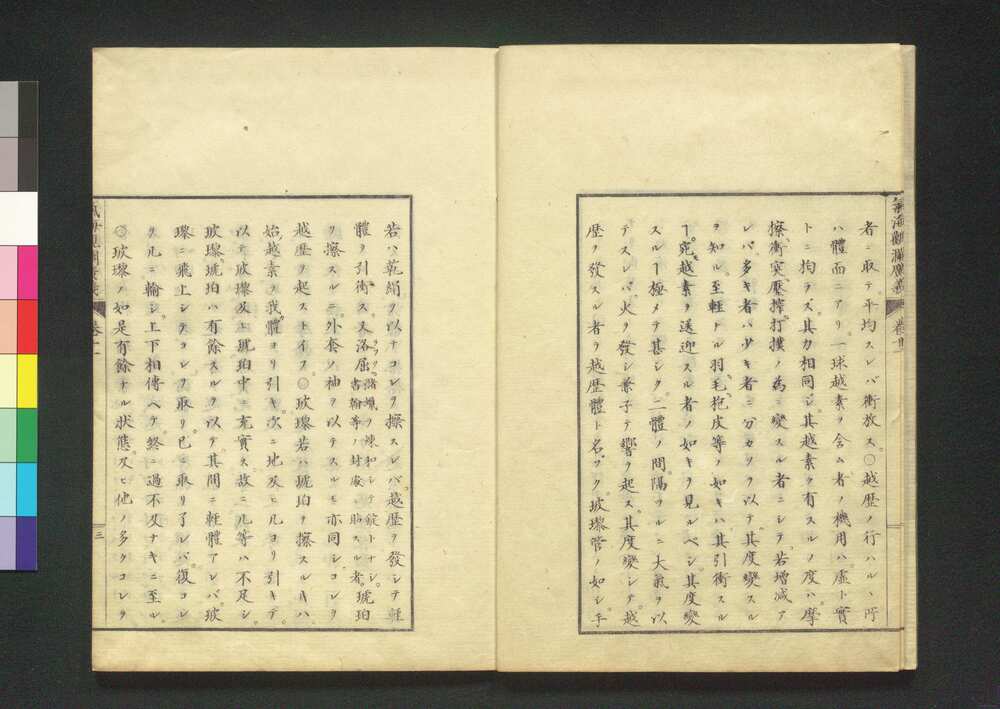 氣海觀瀾廣義 卷十一
者ニ取テ平均スレバ衝放ス。〇越歴ノ行ハルヽ所
ハ體面ニアリ一球越素ヲ含ム者ノ機用ハ虚ト實
トニ拘ラズ其力相同ジ其越素ヲ有スルノ度ハ摩
擦衝突壓搾打撲ノ為ニ變スル者ニシテ若増減ア
レバ多キ者ハ少キ者ニ分カツヲ以テ其度變スル
ヲ知ル至輕ナル羽毛抱皮等ノ如キハ其引衝スル
ヿ宛越素ヲ送迎スル者ノ如キヲ見ルベシ其度變
スルヿ極メテ甚シク二體ノ間隔ツルニ大氣ヲ以
テスレバ火ヲ發シ兼テ響ヲ起ス其度變シテ越
歴ヲ發スル者ヲ越歴體ト名ヅク玻瓈管ノ如シ手
若ハ乾絹ヲ以ナコレヲ擦スレバ越歴ヲ發シテ輕
體ヲ引衝ス又洛屈 ヲフリ諸蠟ヲ煉和シテ錠トナシ書翰等ノ封處ニ貼スル者 琥珀
ヲ擦スルニ外套ノ袖ヲ以テスルモ亦同シコレヲ
越歴ヲ起ストイフ〇玻瓈若ハ琥珀ヲ擦スルキハ
始越素ヲ我體ヨリ引キ次ニ地及ヒ几ヨリ引キテ
以テ玻瓈及ヒ琥珀中ニ充實ス故ニ几等ハ不足シ
玻瓈琥珀ハ有餘スルヲ以テ其間ニ輕體アレバ玻
瓈ニ飛上シテコレヲ取リ已ニ取リ了レバ復コレ
ヲ几ニ輸シ上下相傳ヘテ終ニ過不及ナキニ至ル
〇玻瓈ノ如是有餘ナル狀態及ヒ他ノ多クコレヲ
卷十一
三